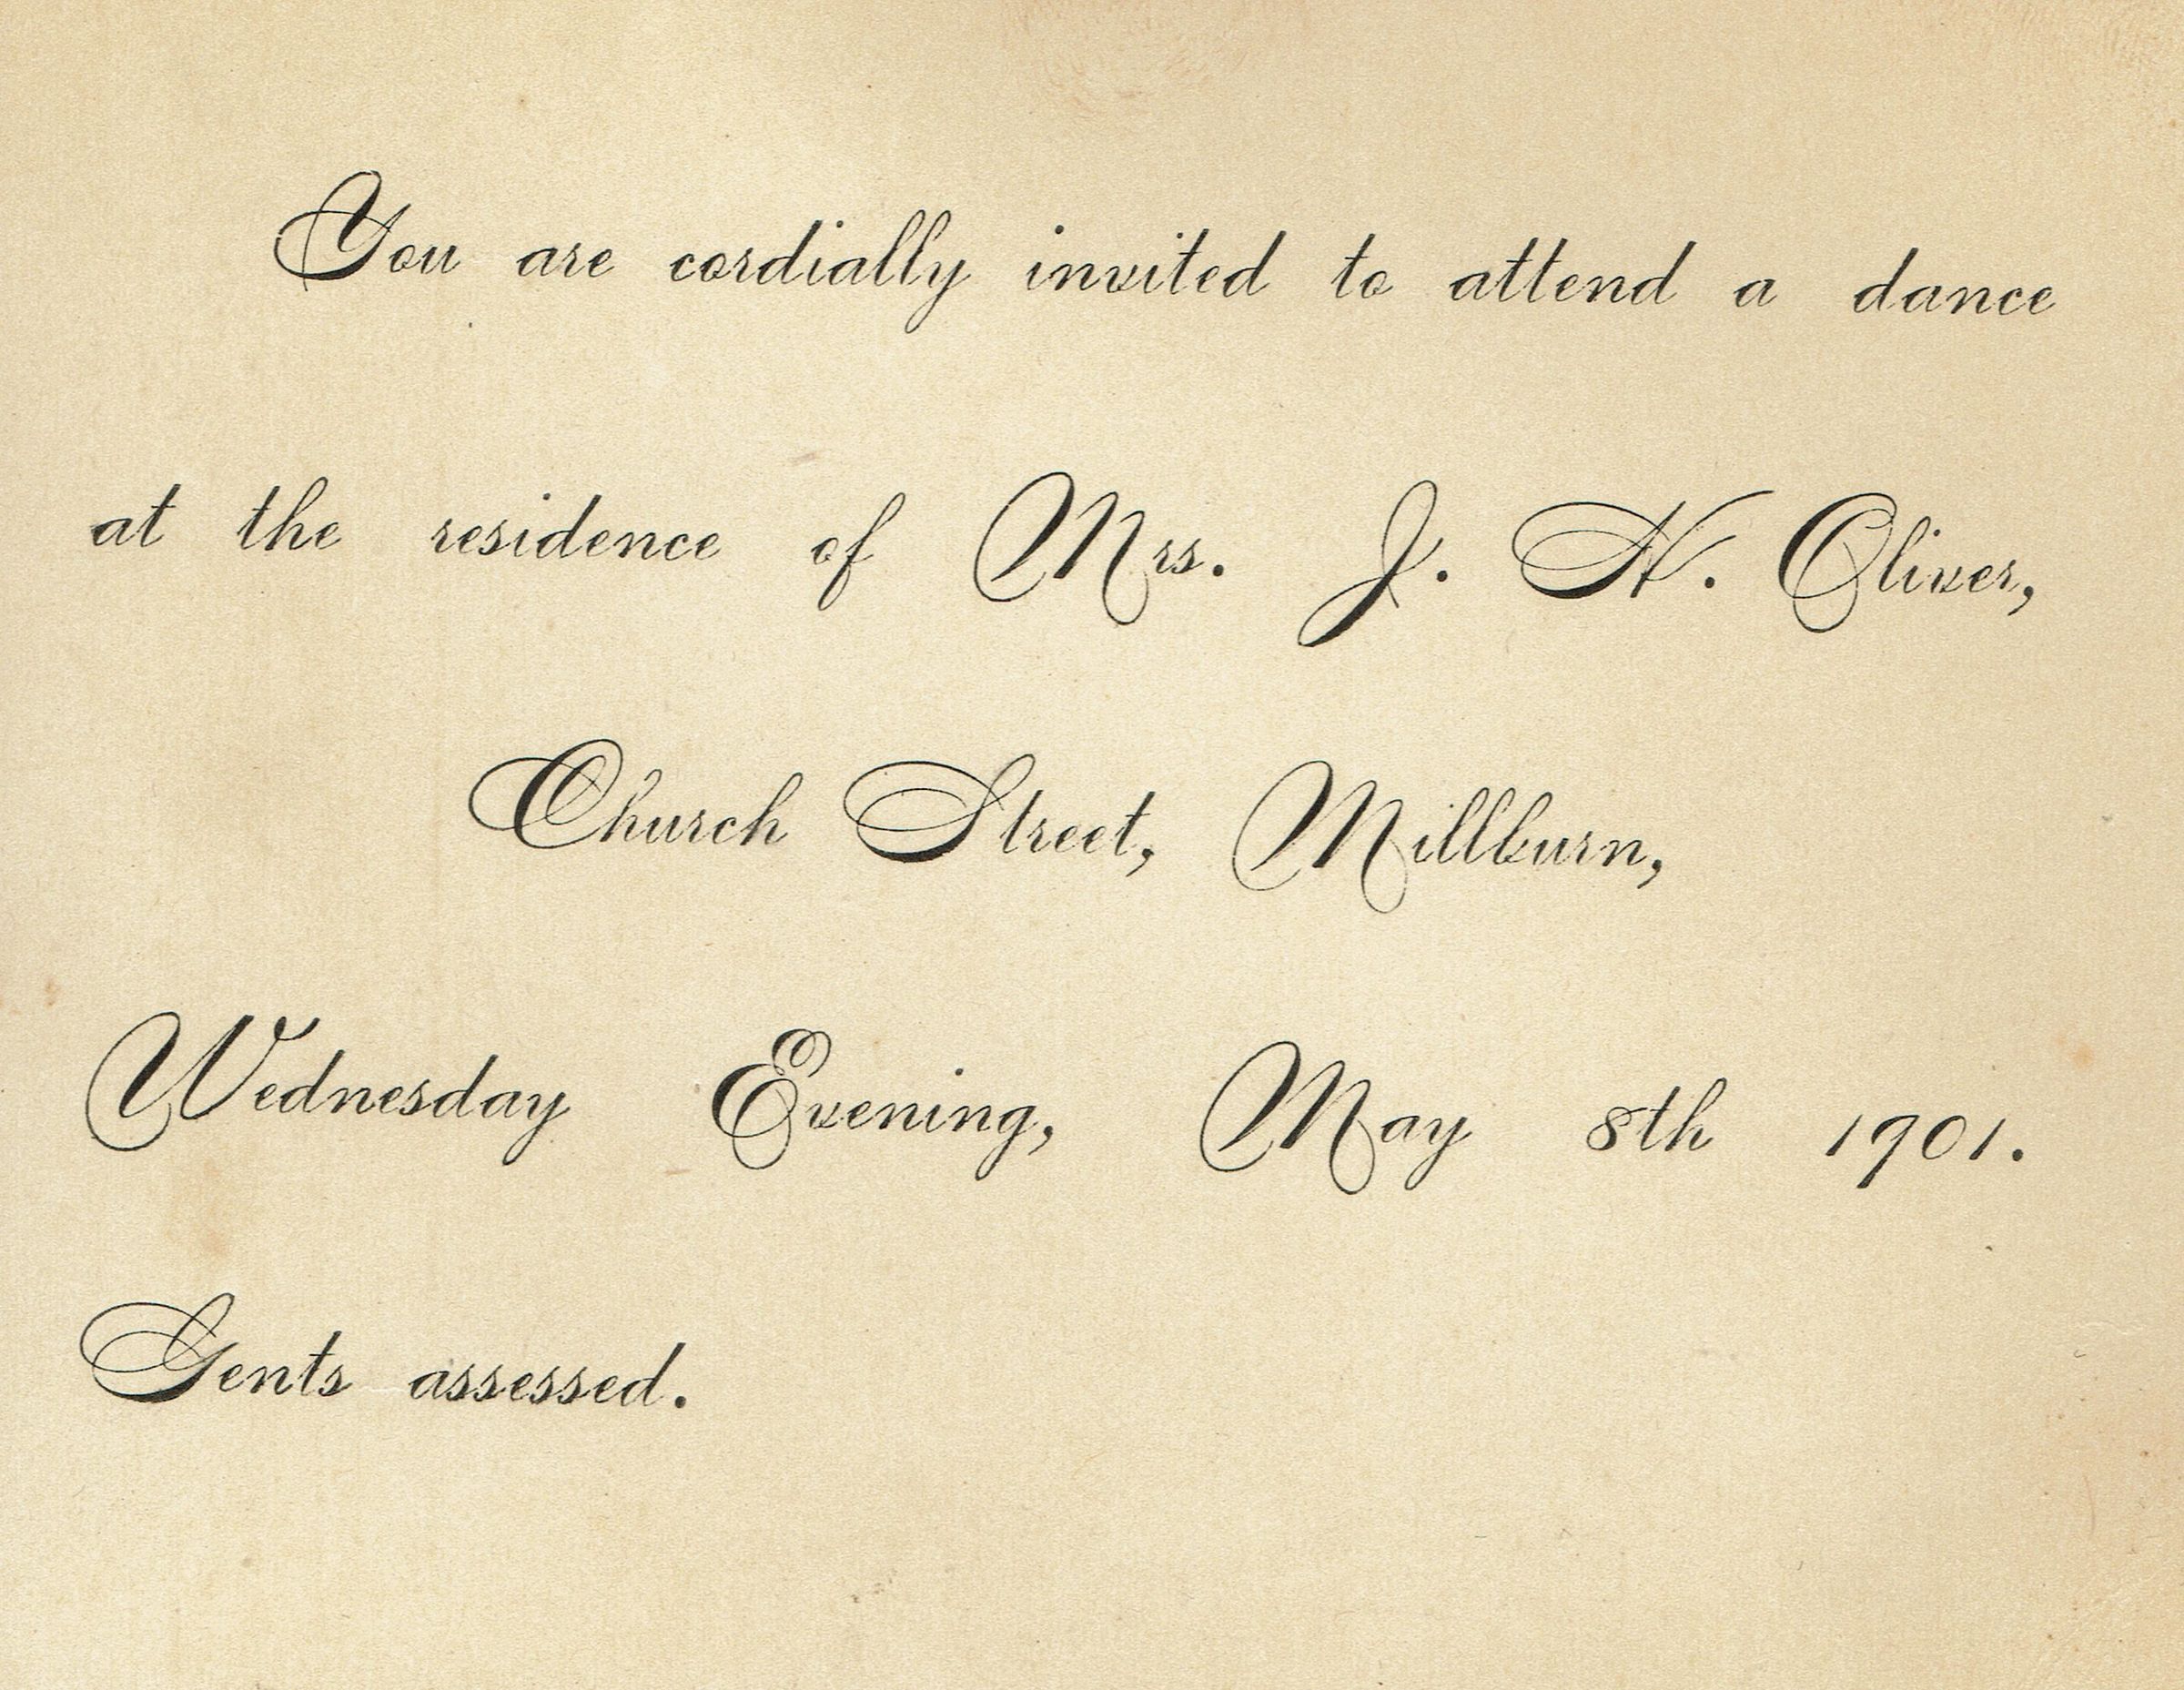 You are cordially invited to attend a dance
at the residence of Mrs. J. H. Oliver,
Church Street, Millburn,
Wednesday Evening, May 8th 1901.
Gents assessed.